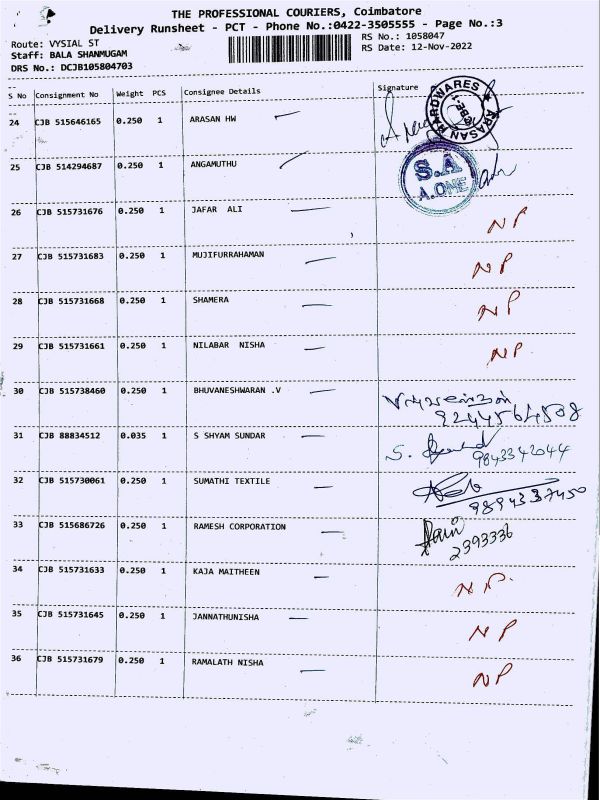 THE PROFESSIONAL COURIERS, Coimbatore
Delivery Runsheet - PCT - Phone No.:0422-3505555 - Page No.:3
Route: VYSIAL ST
RS No.: 1058047
Staff: BALA SHANMUGAM
RS Date: 12-Nov-2022
DRS No.: DCJB105804703
S No Consignment No Weight PCS Consignee Details Signature
24 CJB 515646165 0.250 1 ARASAN HW
ARASAN HARDWARES
25 CJB 514294687 0.250 1 ANGAMUTHU
S.A
A.ONE
26 CJB 515731676 0.250 1 JAFAR ALI NP
27 CJB 515731683 0.250 1 MUJIFURRAHAMAN NP
28 CJB 515731668 0.250 1 SHAMERA NP
29 CJB 515731661 0.250 1 NILABAR NISHA NP.
30 CJB 515738460 0.250 1 BHUVANESHWARAN .V
9244564508
31 CJB 88834512 0.035 1 S SHYAM SUNDAR
9843342044
32 CJB 515730061 0.250 1 SUMATHI TEXTILE
9894337450
33 CJB 515686726 0.250 1 RAMESH CORPORATION
2393336
34 CJB 515731633 0.250 1 KAJA MAITHEEN NP.
35 CJB 515731645 0.250 1 JANNATHUNISHA NP
36 CJB 515731679 0.250 1 RAMALATH NISHA NP